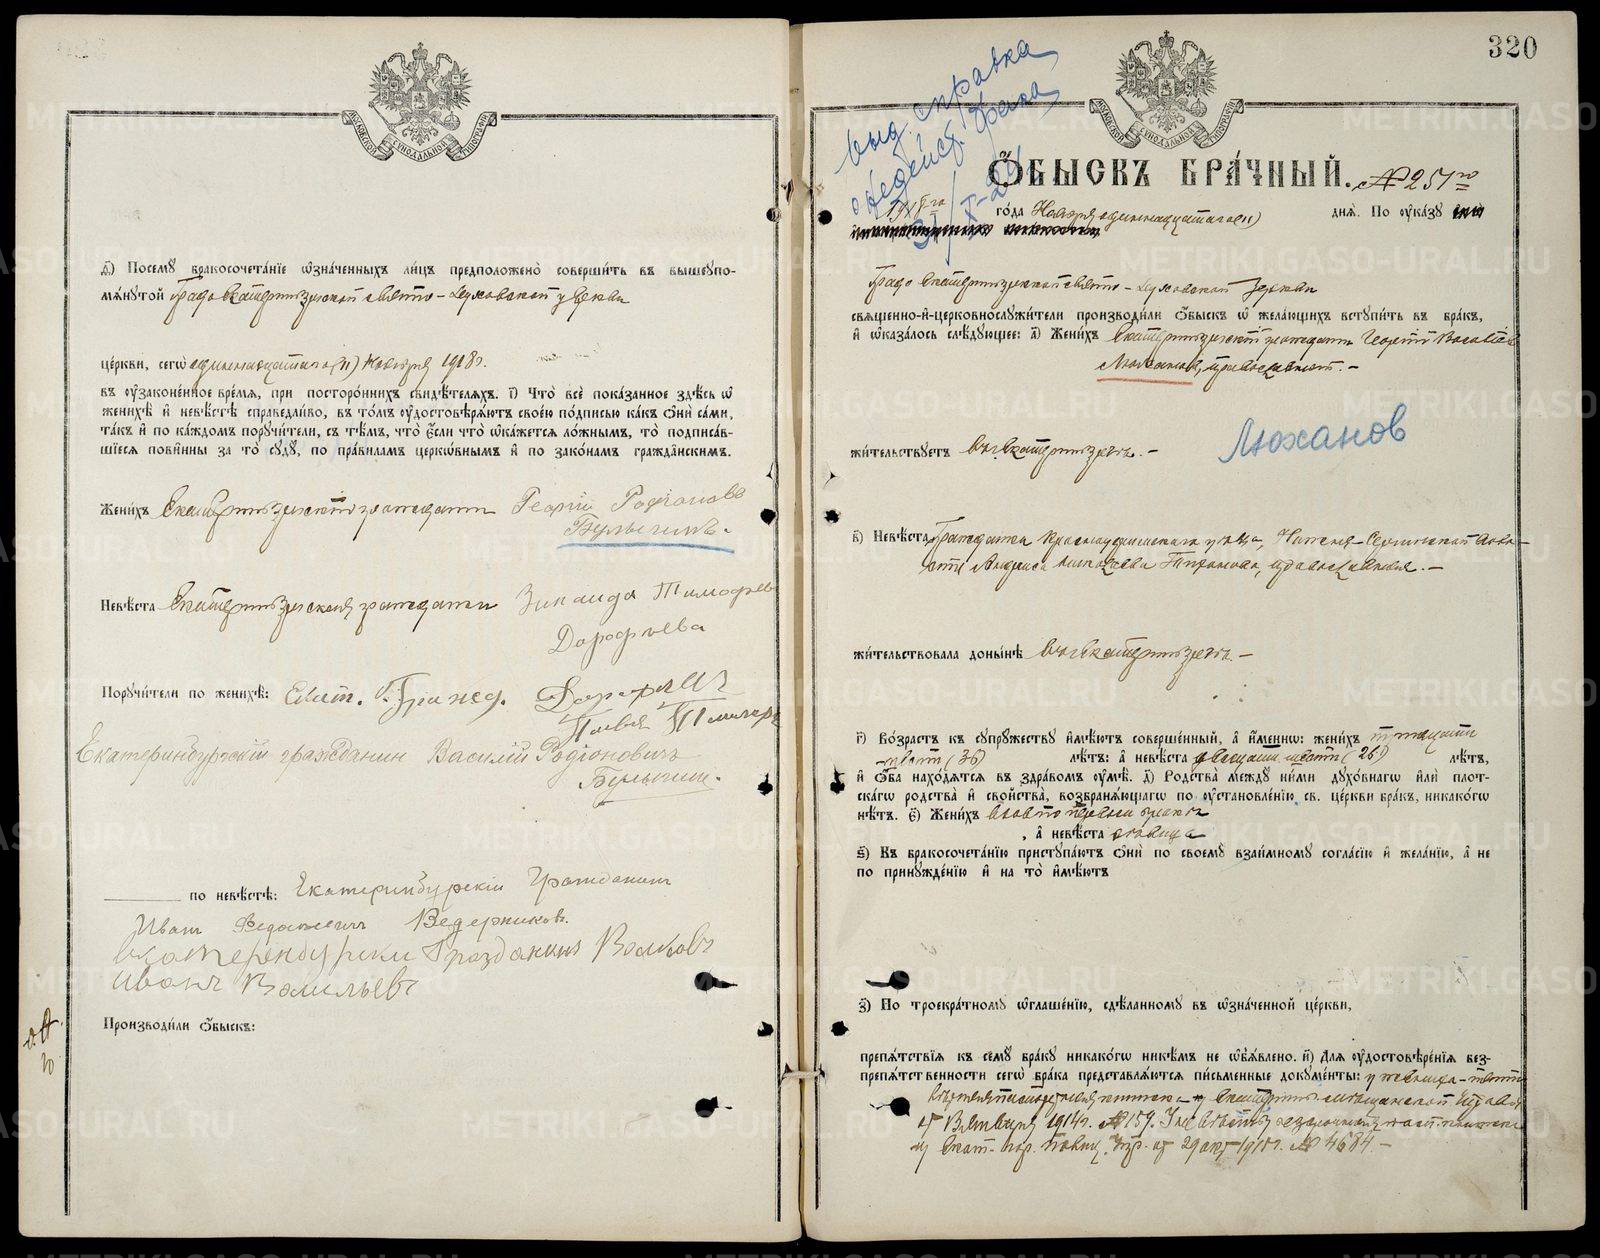 МОСКОВСКОЙ СѴНОДАЛЬНОЙ ТИПОГРАФІИ
д҃) Посемꙋ бракосочетанїе ѡзначенныхъ лицъ предположено совершить въ вышеупо-
мѧнутой Градо Екатеринбургской Свято-Духовской церкви
церкви, сегѡ одиннадцатаго (11) Ноября 1918 г.
въ оузаконенное времѧ, при постороннихъ свидѣтелѧхъ. г҃) Что все показанное здѣсь ѡ
женихѣ и невѣстѣ справедливо, въ томъ оудостовѣрѧютъ своею подписью какъ ѻни сами,
такъ и по каждомъ поручители, съ тѣмъ, что если что ѡкажетсѧ ложнымъ, то подписав-
шїесѧ повинны за то судꙋ, по правиламъ церкѡвнымъ и по законамъ гражданскимъ.
Женихъ Екатеринбургскій гражданинъ Георгій Родіоновъ
Булычинъ.
Невѣста Екатеринбургская гражданка Зинаида Тимофеев
Дорофѣева
Поручители по женихѣ: Екат. г. Гражд. Дорофѣевъ
Екатеринбурскій гражданин Василій Родіоновичъ
Булычин.
по невѣстѣ: Екатеринбурскій Гражданинъ
Иван Ведерников.
Екатеренбурски Гразданинъ Волковъ
Иванъ Васильевъ
Производили ѻбыскъ:
320
выд. справка
о недейст. брака
МОСКОВСКОЙ СѴНОДАЛЬНОЙ ТИПОГРАФІИ
Ѻбыскъ брачный. № 251го
1918го года Ноября одиннадцатаго (11) днѧ. По оуказу
Градо Екатеринбургской Свято-Духовской церкви
свѧщенно-и-церковнослужители производили ѻбыскъ ѡ желающихъ вступить въ бракъ,
и ѡказалось слѣдующее: а҃) Женихъ Екатеринбургскій гражданинъ Георгій
Люханов, православный. –
Люханов
жительствуетъ въ г. Екатеринбургѣ. –
в҃) Невѣста Гражданка Красноуфимскаго уѣзда, Нижне-Сергинской воло-
сти Николаева православная. –
жительствовала донынѣ въ г. Екатеринбургѣ –
г҃) Возрастъ къ супружеству имѣютъ совершенный, а именнѡ: женихъ тридцати
шести (36) лѣтъ: а невѣста двадцати шести (26) лѣтъ,
и ѻба находѧтсѧ въ здравомъ оумѣ. д҃) Родства между ними духовнагѡ или плот-
скагѡ родства и свойства, возбранѧющагѡ по оустановленїю св. церкви бракъ, никакогѡ
нѣтъ. е҃) Женихъ вдовъ по первому браку
, а невѣста вдовица
ѕ҃) Къ бракосочетанїю приступаютъ ѻни по своему взаимному согласїю и желанїю, а не
по принужденїю и на то имѣютъ
з҃) По троекратному ѡглашенїю, сдѣланному въ ѡзначенной церкви,
препѧтствїѧ къ семꙋ бракꙋ никакогѡ никѣмъ не ѡбъѧвлено. и҃) Для оудостовѣренїѧ без-
препѧтственности сегѡ брака представлѧютсѧ письменные документы: у жениха –
безсрочная паспортная книжка Екатеринб. мѣщанской Управы
от 8 Января 1914 г. № 159. У невѣсты
из Екат. 29 окт 1918 г. № 4684. –